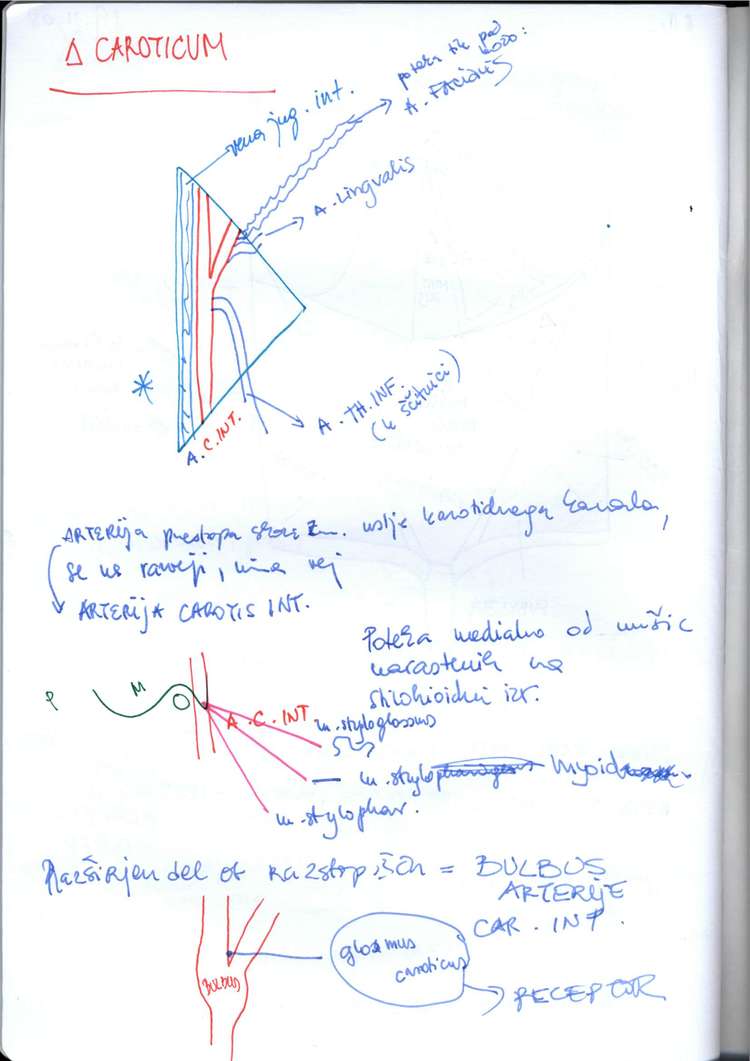 Δ CAROTICUM
poteka tik pod
kožo:
A. FACIALIS
vena jug. int.
A. lingvalis
A. TH. INF.
(k ščitnici)
A. C. INT.
ARTERIJA prestopa skozi zun. ustje karotidnega kanala,
se ne razveji, nima vej
ARTERIJA CAROTIS INT.
Poteka medialno od mišic
narastenih na
stilohioidni izr.
P M
A. C. INT
m. styloglossus
m. stylo hyoid
m. stylophar.
Razširjen del ot razstopiščh = BULBUS
ARTERIJE
CAR. INT.
glomus
caroticus
BULBUS
RECEPTOR